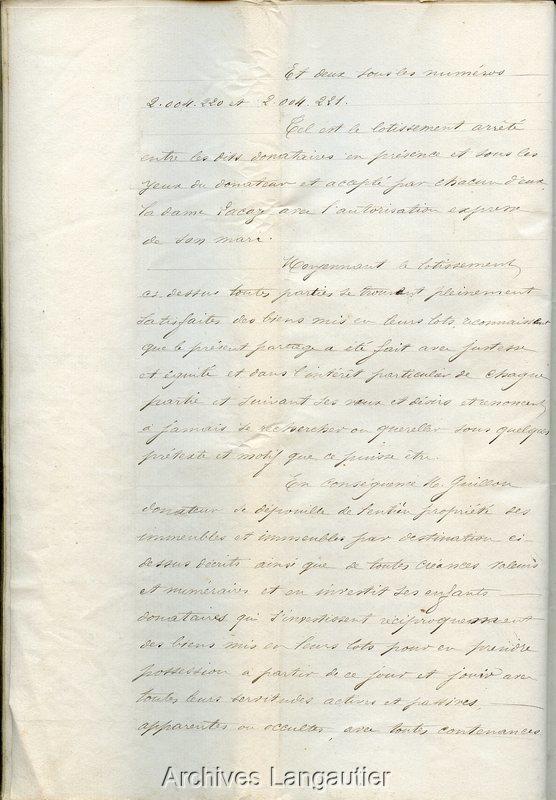 Et deux sous les numéros
2.004.220 et 2.004.221.
Tel est le lotissement arrêté
entre les dits donataires en présence et sous les
yeux du donateur et accepté par chacun d'eux
la dame avec l'autorisation expresse
de son mari.
Moyennant le lotissement
ci dessus toutes parties se trouvent pleinement
satisfaites des biens mis en leurs lots, reconnaissent
que le présent partage a été fait avec justesse
et équité et dans l'intérêt particulier de chaque
partie et suivant ses vœux et désirs et renoncent
à jamais se rechercher ou quereller sous quelques
prétexte et motif que ce puisse être.
En conséquence M. Guillou
donateur se dépouille de l'entière propriété des
immeubles et immeubles par destination ci-
dessus décrits ainsi que de toutes créances valeurs
et numéraires et en investit ses enfants
donataires qui s'investissent réciproquement
des biens mis en leurs lots pour en prendre
possession à partir de ce jour et jouir avec
toutes leurs servitudes actives et passives,
apparentes ou occultes, avec toutes contenances
Archives Langautier